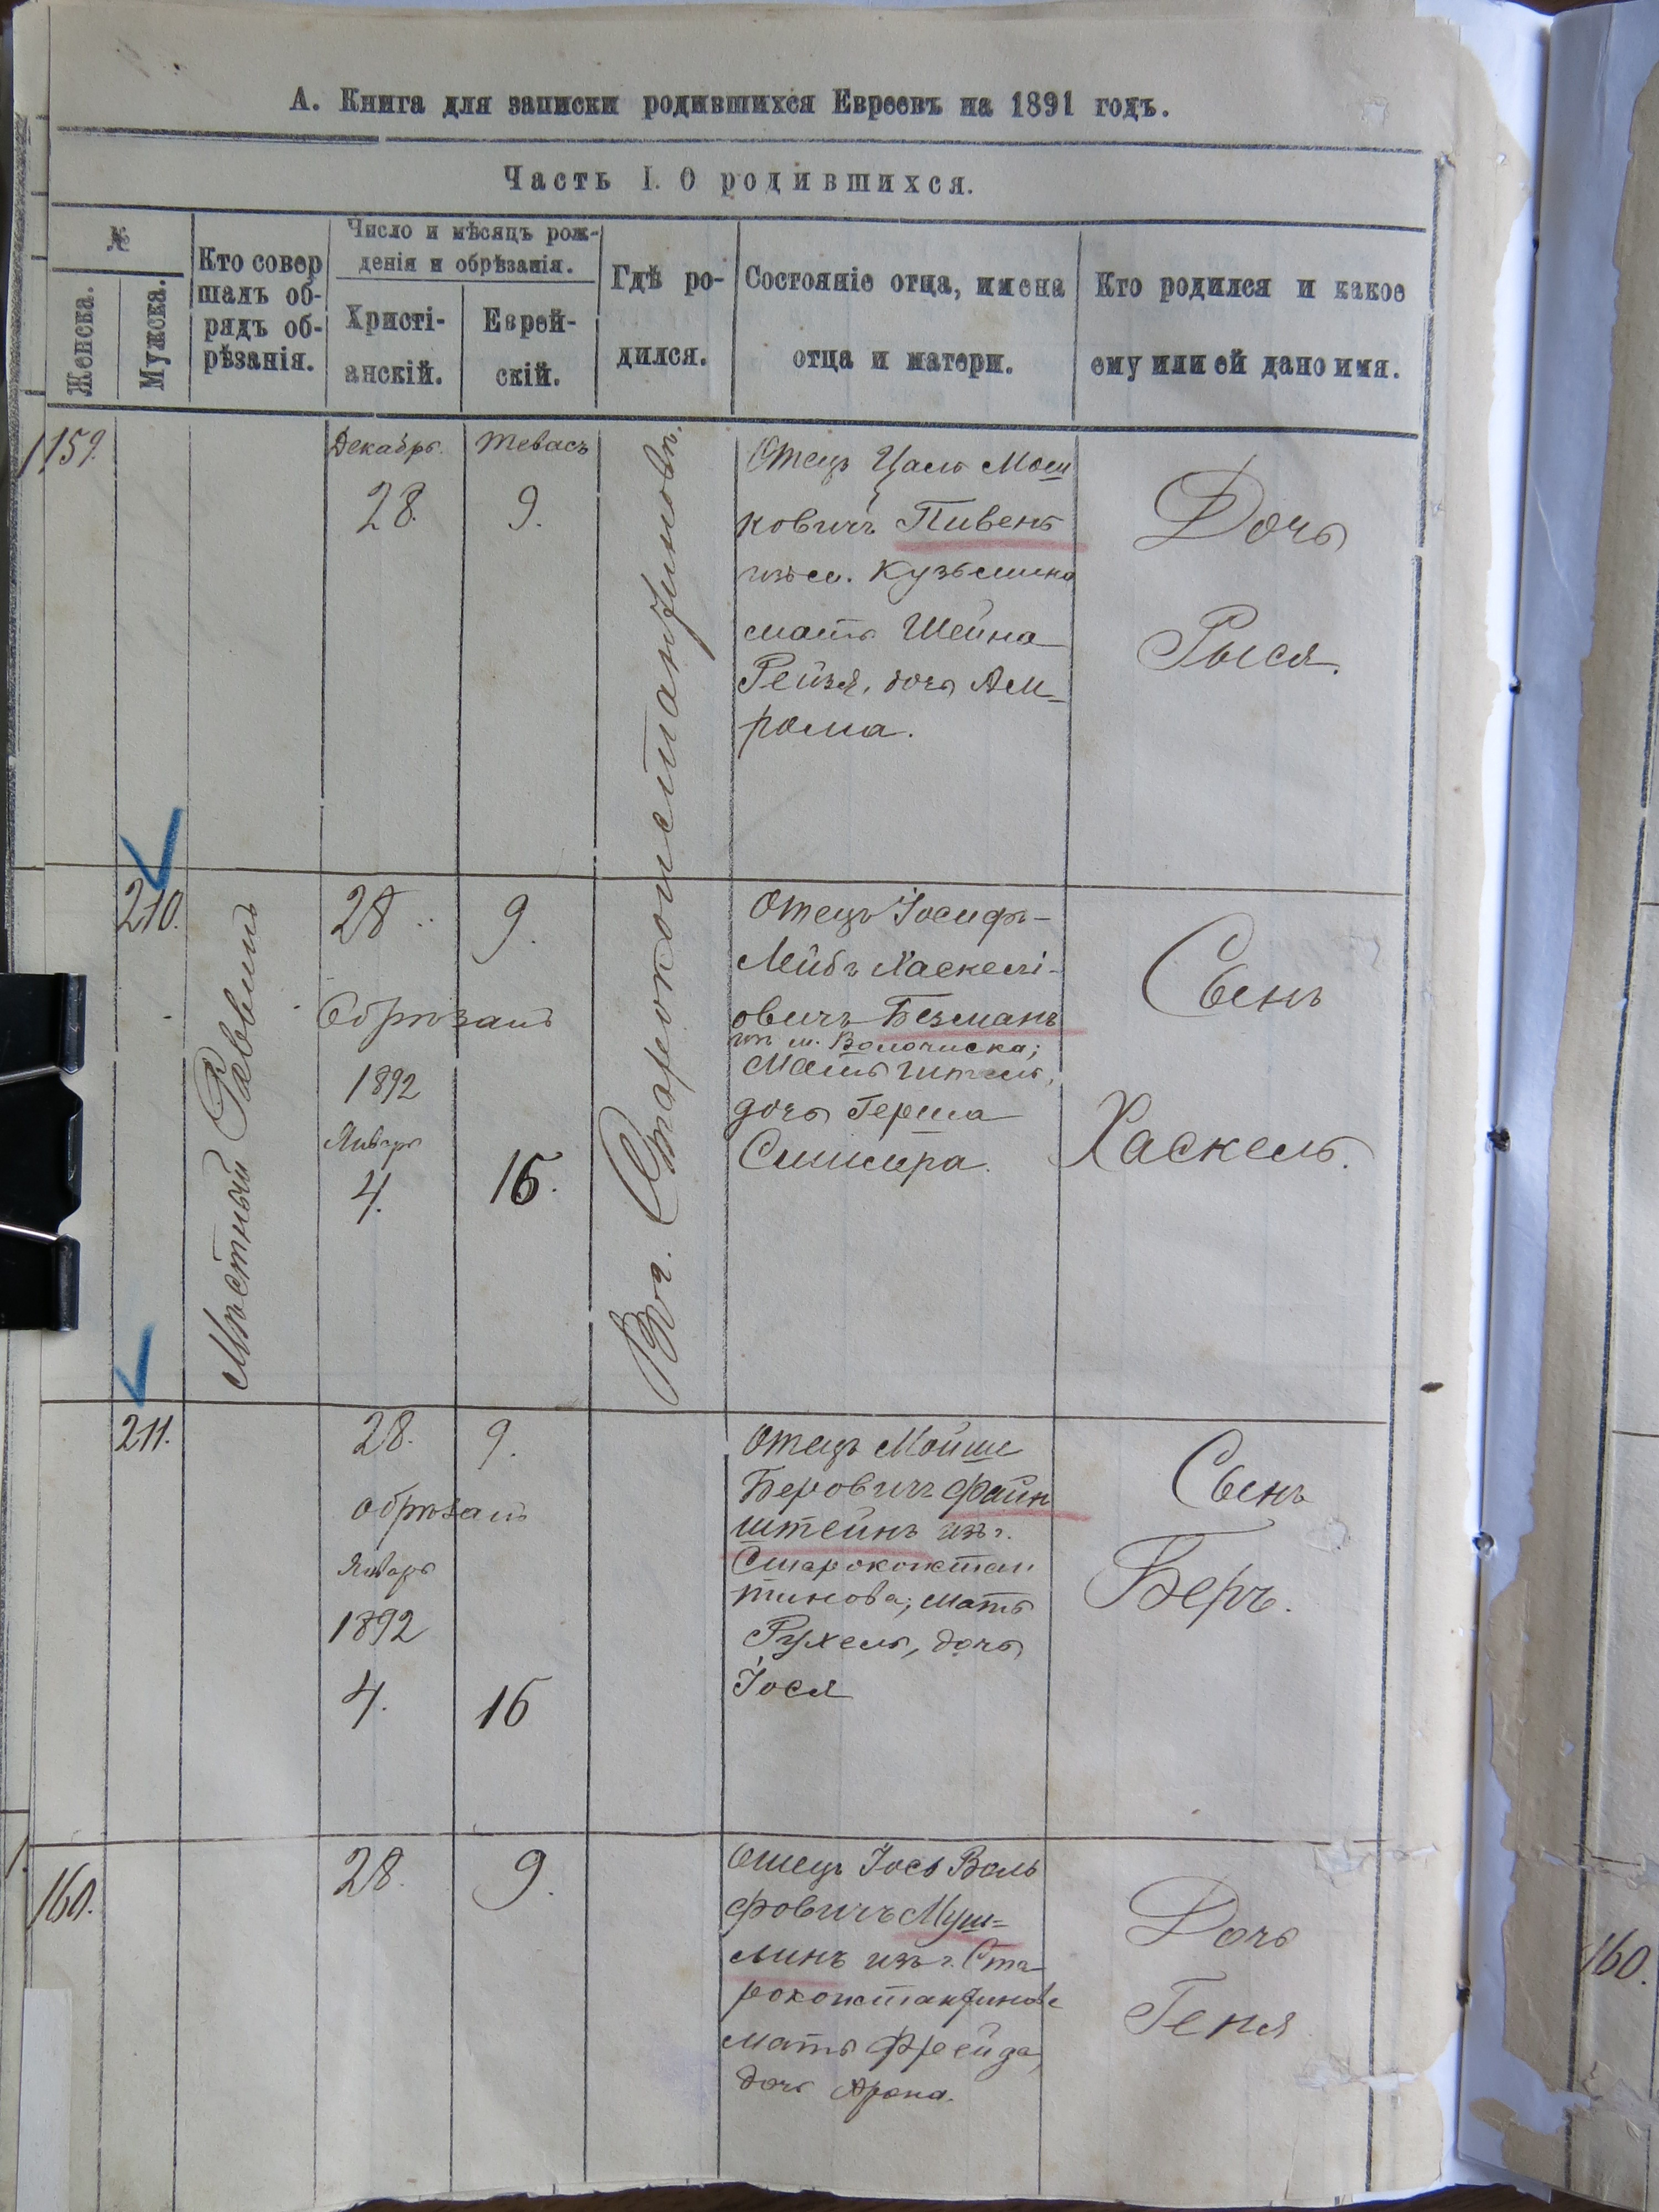 А. Книга для записки родившихся Евреевъ на 1891 годъ.
Часть I. О родившихся.
№
Женска.
Мужска.
Кто совер
шалъ об-
рядъ об-
рѣзанія.
Число и мѣсяцъ рож-
денія и обрѣзанія.
Христі-
анскій.
Еврей-
скій.
Гдѣ ро-
дился.
Состояніе отца, имена
отца и матери.
Кто родился и какое
ему или ей дано имя.
159.
Декабрь
28.
Тевасъ
9.
Отецъ Цаль Мош
ковичъ Пивень
изъ м. Кузьмина
мать Шейна
Рейзя, дочь Ам-
рома.
Дочь
Рыся.
Въ г. Староконстантиновѣ.
210.
Мѣстный Раввинъ
28
9.
Обрѣзанъ
1892
Январь
4.
16.
Отецъ Іосифъ-
Лейбъ Хаскелі-
овичъ Безманъ
изъ м. Волочиска;
Мать Гитель,
дочь Герша
Симхира.
Сынъ
Хаскель.
211.
28.
9.
обрѣзанъ
Январь
1892
4.
16
Отецъ Мойше
Беровичъ Файн
штейнъ изъ г.
Староконстан
тинова; мать
Рухель, дочь
Іося
Сынъ
Беръ.
160.
28.
9.
Отецъ Іось Воль
фовичъ Муш-
линъ изъ г. Ста
роконстантинова
мать Фрейда,
дочь Арона.
Дочь
Геня
160.